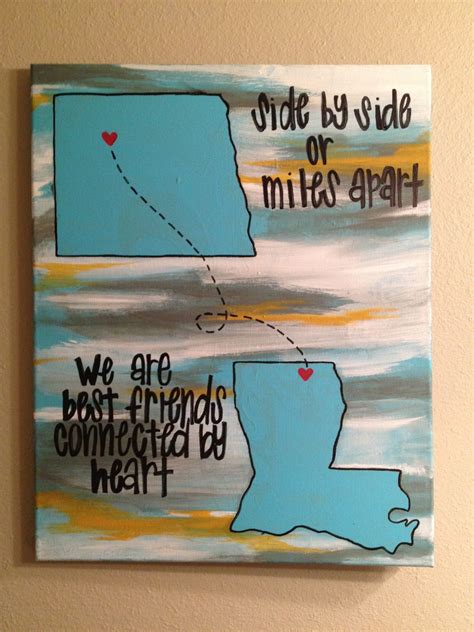 side by side
or
miles apart
we are
best friends
connected by
heart